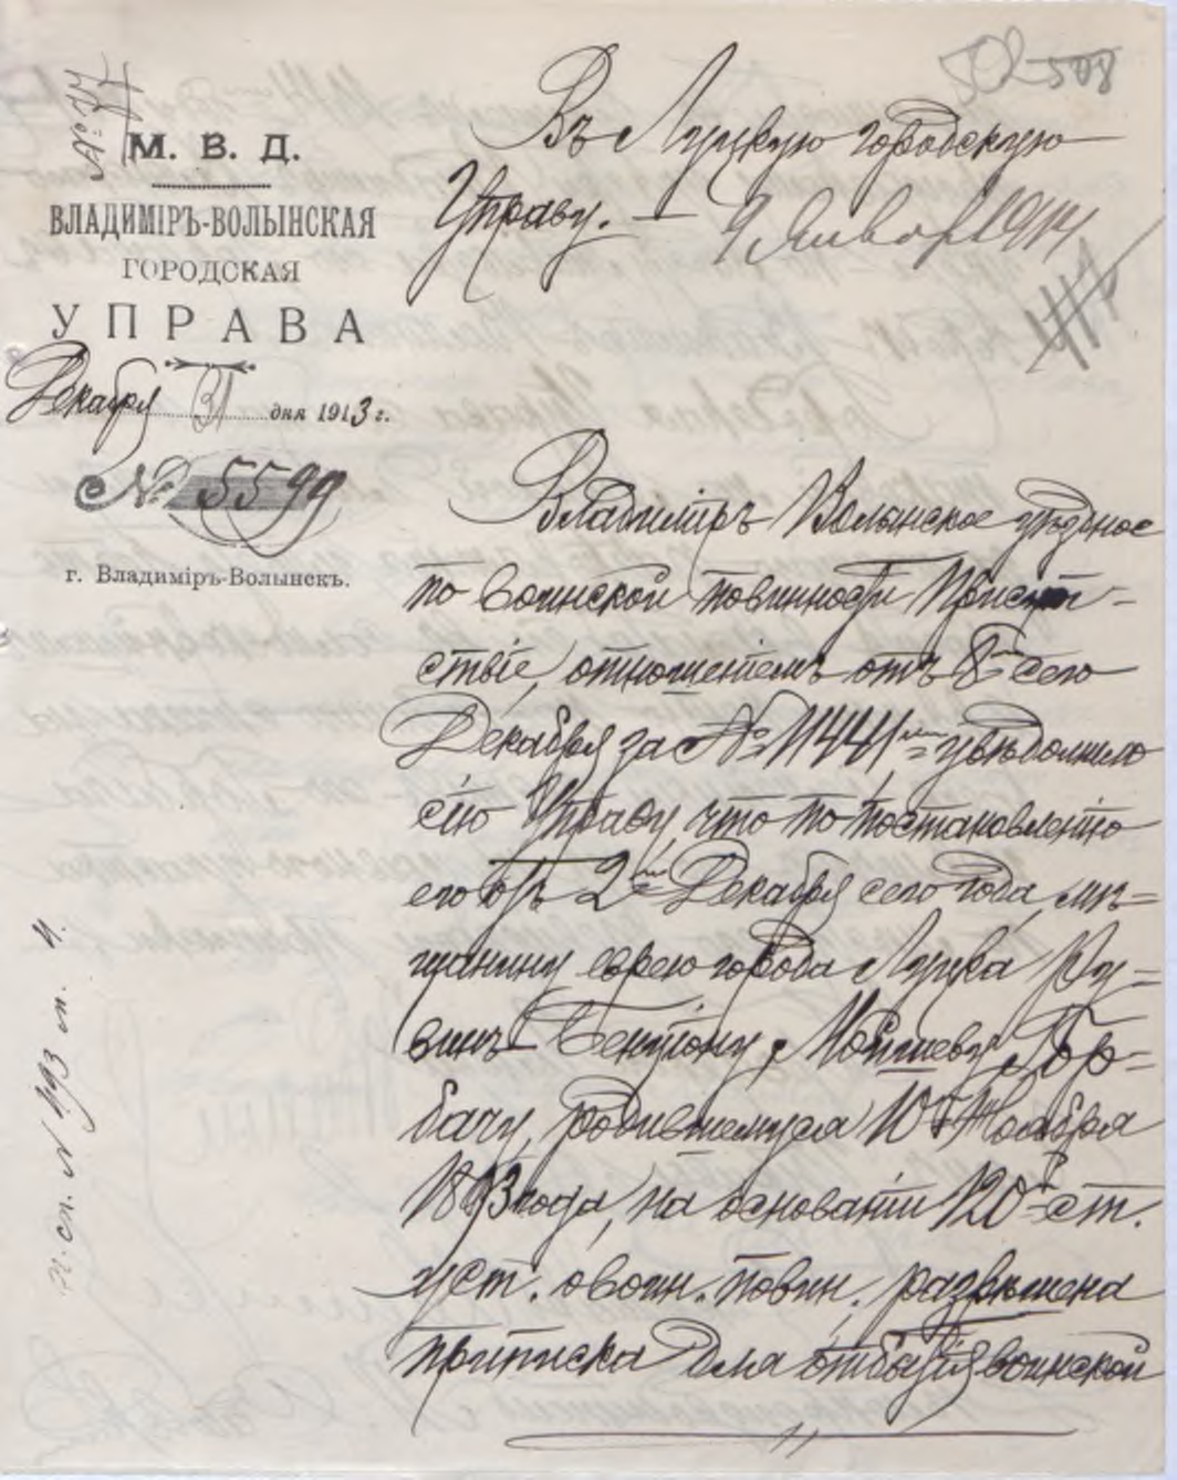 508
М. В. Д.
ВЛАДИМІРЪ-ВОЛЫНСКАЯ
ГОРОДСКАЯ
УПРАВА
Декабря 31 дня 1913 г.
№ 5599
г. Владиміръ-Волынскъ.
Въ Луцкую городскую
Управу.
9 Января 1914
Владиміръ Волынское уѣздное
по воинской повинности Присут-
ствіе, отношеніемъ отъ 8го сего
Декабря за № 11441мъ увѣдомило
сію Управу, что по постановленію
его отъ 2го Декабря сего года, мѣ=
щанину еврею города Луцка Ру=
винъ Бенціону Мошкову Гор=
бачу, родившемуся 10го Ноября
1893 года, на основаніи 120 ст.
уст. о воин. повин. разрѣшена
приписка для отбытія воинской
п. сп. № 193 ст. ч.